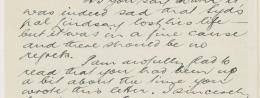 was indeed sad that Syd's
pal Lindsay lost his life -
but it was in a fine cause
and there should be no
regrets.
I am awfully glad to
read that you had been up
a bit about the time you
wrote this letter. I sincerely